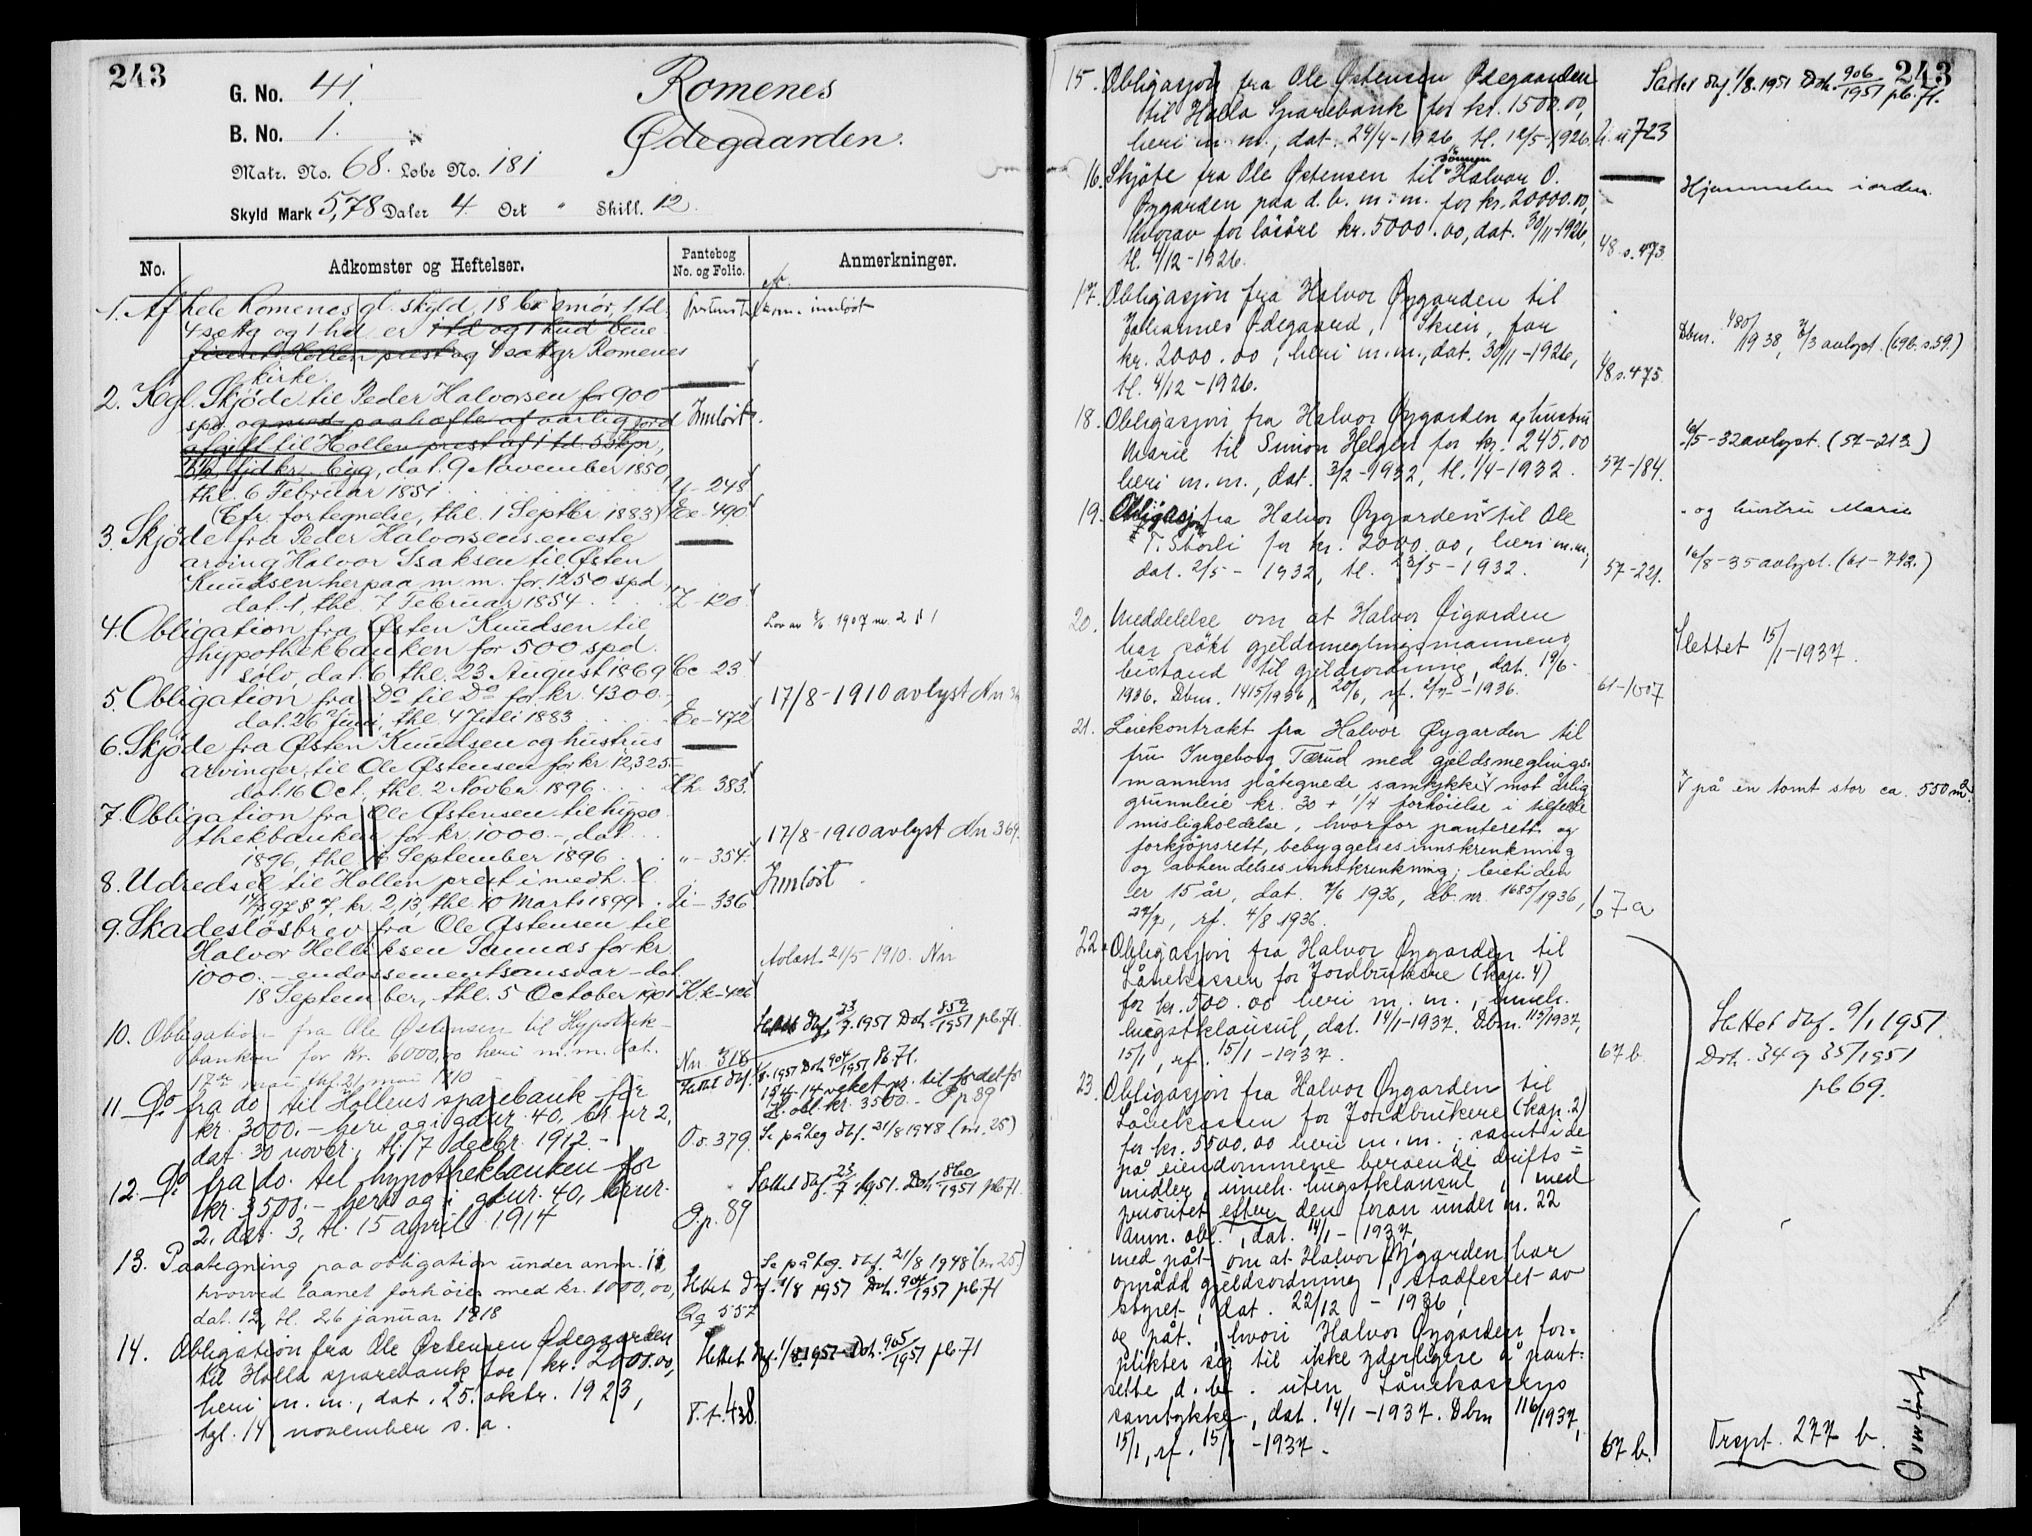 243
G. No. 41.
B. No. 1.
Matr. No. 68. Løbe No. 181
Skyld Mark 5,78 Daler 4. Ort " Skill. 12
Romenes
Ødegaarden.
No.
Adkomster og Heftelser.
Pantebog No. og Folio.
Anmerkninger.
1. Af hele Romenes gl. skyld, 18 smør, 1 td.
4 og 1 hd er 1 td og 1 hud bene
ficeret Hollen prest og Romenes
kirke.
2. Kgl. Skjøde til Peder Halvorsen for 900
spd. og mod paahefte af aarlig jord
afgift til Hollen prest af 1 td. 5 skpr,
fjdkr. byg, dat. 9 November 1850,
thl. 6 Februar 1851
Y - 248
Imløst
(Cfr. fortegnelse, thl. 1 Septbr. 1883) Ee - 490
3. Skjøde fra Peder Halvorsens eneste
arving Halvor Isaksen til Østen
Knudsen her paa m. m. for 1250 spd
dat. 1, thl. 7 Februar 1854
Z - 120
4. Obligation fra Østen Knudsen til
hypothekbanken for 500 spd.
sølv, dat. 6 thl. 23 August 1869 Cc 23
Lov av 1907 nr. 2 § 1
5. Obligation fra Do til Do for kr. 4300.
dat. 26 Juni, thl. 4 Juli 1883
Ee - 472
17/8 - 1910 avlyst Nn
6. Skjøde fra Østen Knudsen og hustrus
arvinger, til Ole Østensen for kr. 12,325
dat. 16 Oct., thl. 2 Novbr 1896
Hh. 383.
7. Obligation fra Ole Østensen til hypo
thekbanken for kr. 1000. -, dat
1896, thl. September 1896
" - 354.
17/8 - 1910 avlyst Nn 369.
8. Udredsel til Hollen prest i medh. l.
97 § 7, kr. 2,13, thl. 10 Marts 1899
Ii - 336
Imløst
9. Skadesløsbrev fra Ole Østensen til
Halvor Helliksen for kr
1000. - endossementsansvar - dat.
18 September, thl. 5 October 1901 Kk - 426
Avlæst 21/5 1910. Nn
10. Obligation fra Ole Østensen til Hypothek-
banken for Kr. 6000,00 heri m. m. dat.
17de mai thl. 21 mai 1910
Nn 318
Slettet dbf. 23/7. 1951 Dok 859/1951 pb. 71.
11. Do fra do til Hollens sparebank for
kr. 3000. - heri og i gdnr. 40, br. nr 2,
dat. 30 novbr., thl. 17 decbr. 1912 -
Oo. 379.
1951 Dok 904/1951 Pb. 71.
1914 14 veket pr. til fordel for
obl. kr. 3500. - Pp 89
Se påteg dbf. 21/8 1948 (nr. 25)
12. Do fra do. til hypothekbanken for
kr. 3500. - heri og i gdnr. 40, brnr.
2, dat. 3, tl. 15 april 1914
P.p. 89
Slettet dbf. 23/7. 1951. Dok 860/1951 pb. 71.
13. Paategning paa obligation under anm. 11,
hvorved laanet forhøies med kr. 1000,00,
dat. 12, tl. 26 januar 1918
Qq 557
Se påteg. dbf. 21/8 1948 (nr 25)
Slettet dbf. 1/8 1951 Dok. 904/1951 pb. 71
14. Obligation fra Ole Østensen Ødegaarden
til Holla sparebank for kr. 2000.00,
heri m. m., dat. 25. oktr. 1923,
tgl. 14 november s. a.
T.t. 438.
Slettet dbf. 1/8. 1951 Dok. 905/1951 pb. 71
243
15. Obligasjon fra Ole Østensen Ødegaarden
til Holla Sparebank for kr. 1500.00,
heri m. m., dat. 24/4 - 1926, tl. 12/5 - 1926. U. u 723
Slettet dbf. 1/8. 1951 Dok. 906/1951 pb. 71.
16. Skjøte fra Ole Østensen til sønnen Halvor O.
Øygarden paa d. b. m. m. for kr. 20000.00,
hvorav for løsøre kr. 5000.00, dat. 30/11 - 1926,
tl. 4/12 - 1926.
48 s. 473
Hjemmelen i orden.
17. Obligasjon fra Halvor Øygarden til
Johannes Ødegaard, Skien, for
kr. 2000.00, heri m. m., dat. 30/11 - 1926,
tl. 4/12 - 1926.
48 s. 475
Dbnr. 480/1938, 7/3 avlyst. (69b. s. 59.)
18. Obligasjon fra Halvor Øygarden og hustru
Marie til Simon Helgen for kr. 245.00
heri m. m., dat. 3/2 - 1932, tl. 1/4 - 1932.
57 - 184.
6/5 - 32 avlyst. (57 - 213)
19. Obligasjon fra Halvor Øygarden til Ole
T. Stoeli for kr. 2000.00, heri m. m,
dat. 2/5 - 1932, tl. 23/5 - 1932.
57 - 221.
- og hustru Marie
16/8 - 35 avlyst. (61 - 742.)
20. Meddelelse om at Halvor Øigarden
har søkt gjeldsmeglingsmannens
bistand til gjeldsordning, dat. 19/6 -
1936. Dbnr. 1415/1936, 20/6, rf. 2/7 - 1936.
61 - 1007
Slettet 15/1 - 1937.
21. Leiekontrakt fra Halvor Øygarden til
fru Ingeborg Tærud med gjeldsmeglings-
mannens påtegnede samtykke mot årlig
grunnleie kr. 30 + 1/4 forhøielse i tilfelle
misligholdelse, hvorfor panterett og
forkjøpsrett, bebyggelsesinnskrenkning
og avhendelsesinnskrenkning; leietiden
er 15 år, dat. 7/6 1936, db. nr. 1685/1936,
27/7, rf. 4/8 1936.
67 a
på en tomt stor ca. 550 m2.
22. Obligasjon fra Halvor Øygarden til
Lånekassen for Jordbrukere (kap. 4)
for kr. 500.00 heri m. m., inneh.
hugstklausul, dat. 14/1 - 1937. Dbnr. 115/1937,
15/1, rf. 15/1 - 1937.
67 b.
23. Obligasjon fra Halvor Øygarden til
Lånekassen for Jordbrukere (kap. 2)
for kr. 5500.00 heri m. m.; samt i de
på eiendommene beroende drifts =
midler, inneh. hugstklausul, med
prioritet efter den foran under nr. 22
anm. obl., dat. 14/1 - 1937,
med påt. om at Halvor Øygarden har
opnådd gjeldsordning, stadfestet av
styret, dat. 22/12 - 1936,
og påt., hvori Halvor Øygarden for=
plikter sig til ikke yderligere å pant=
sette d. b. uten Lånekassens
samtykke, dat. 14/1 - 1937. Dbnr 116/1937,
15/1, rf. 15/1 - 1937.
67 b.
Slettet dbf. 9/1 1951.
Dok. 34 og 35/1951
pb 69.
Trspt. 277 b.
Omskrift